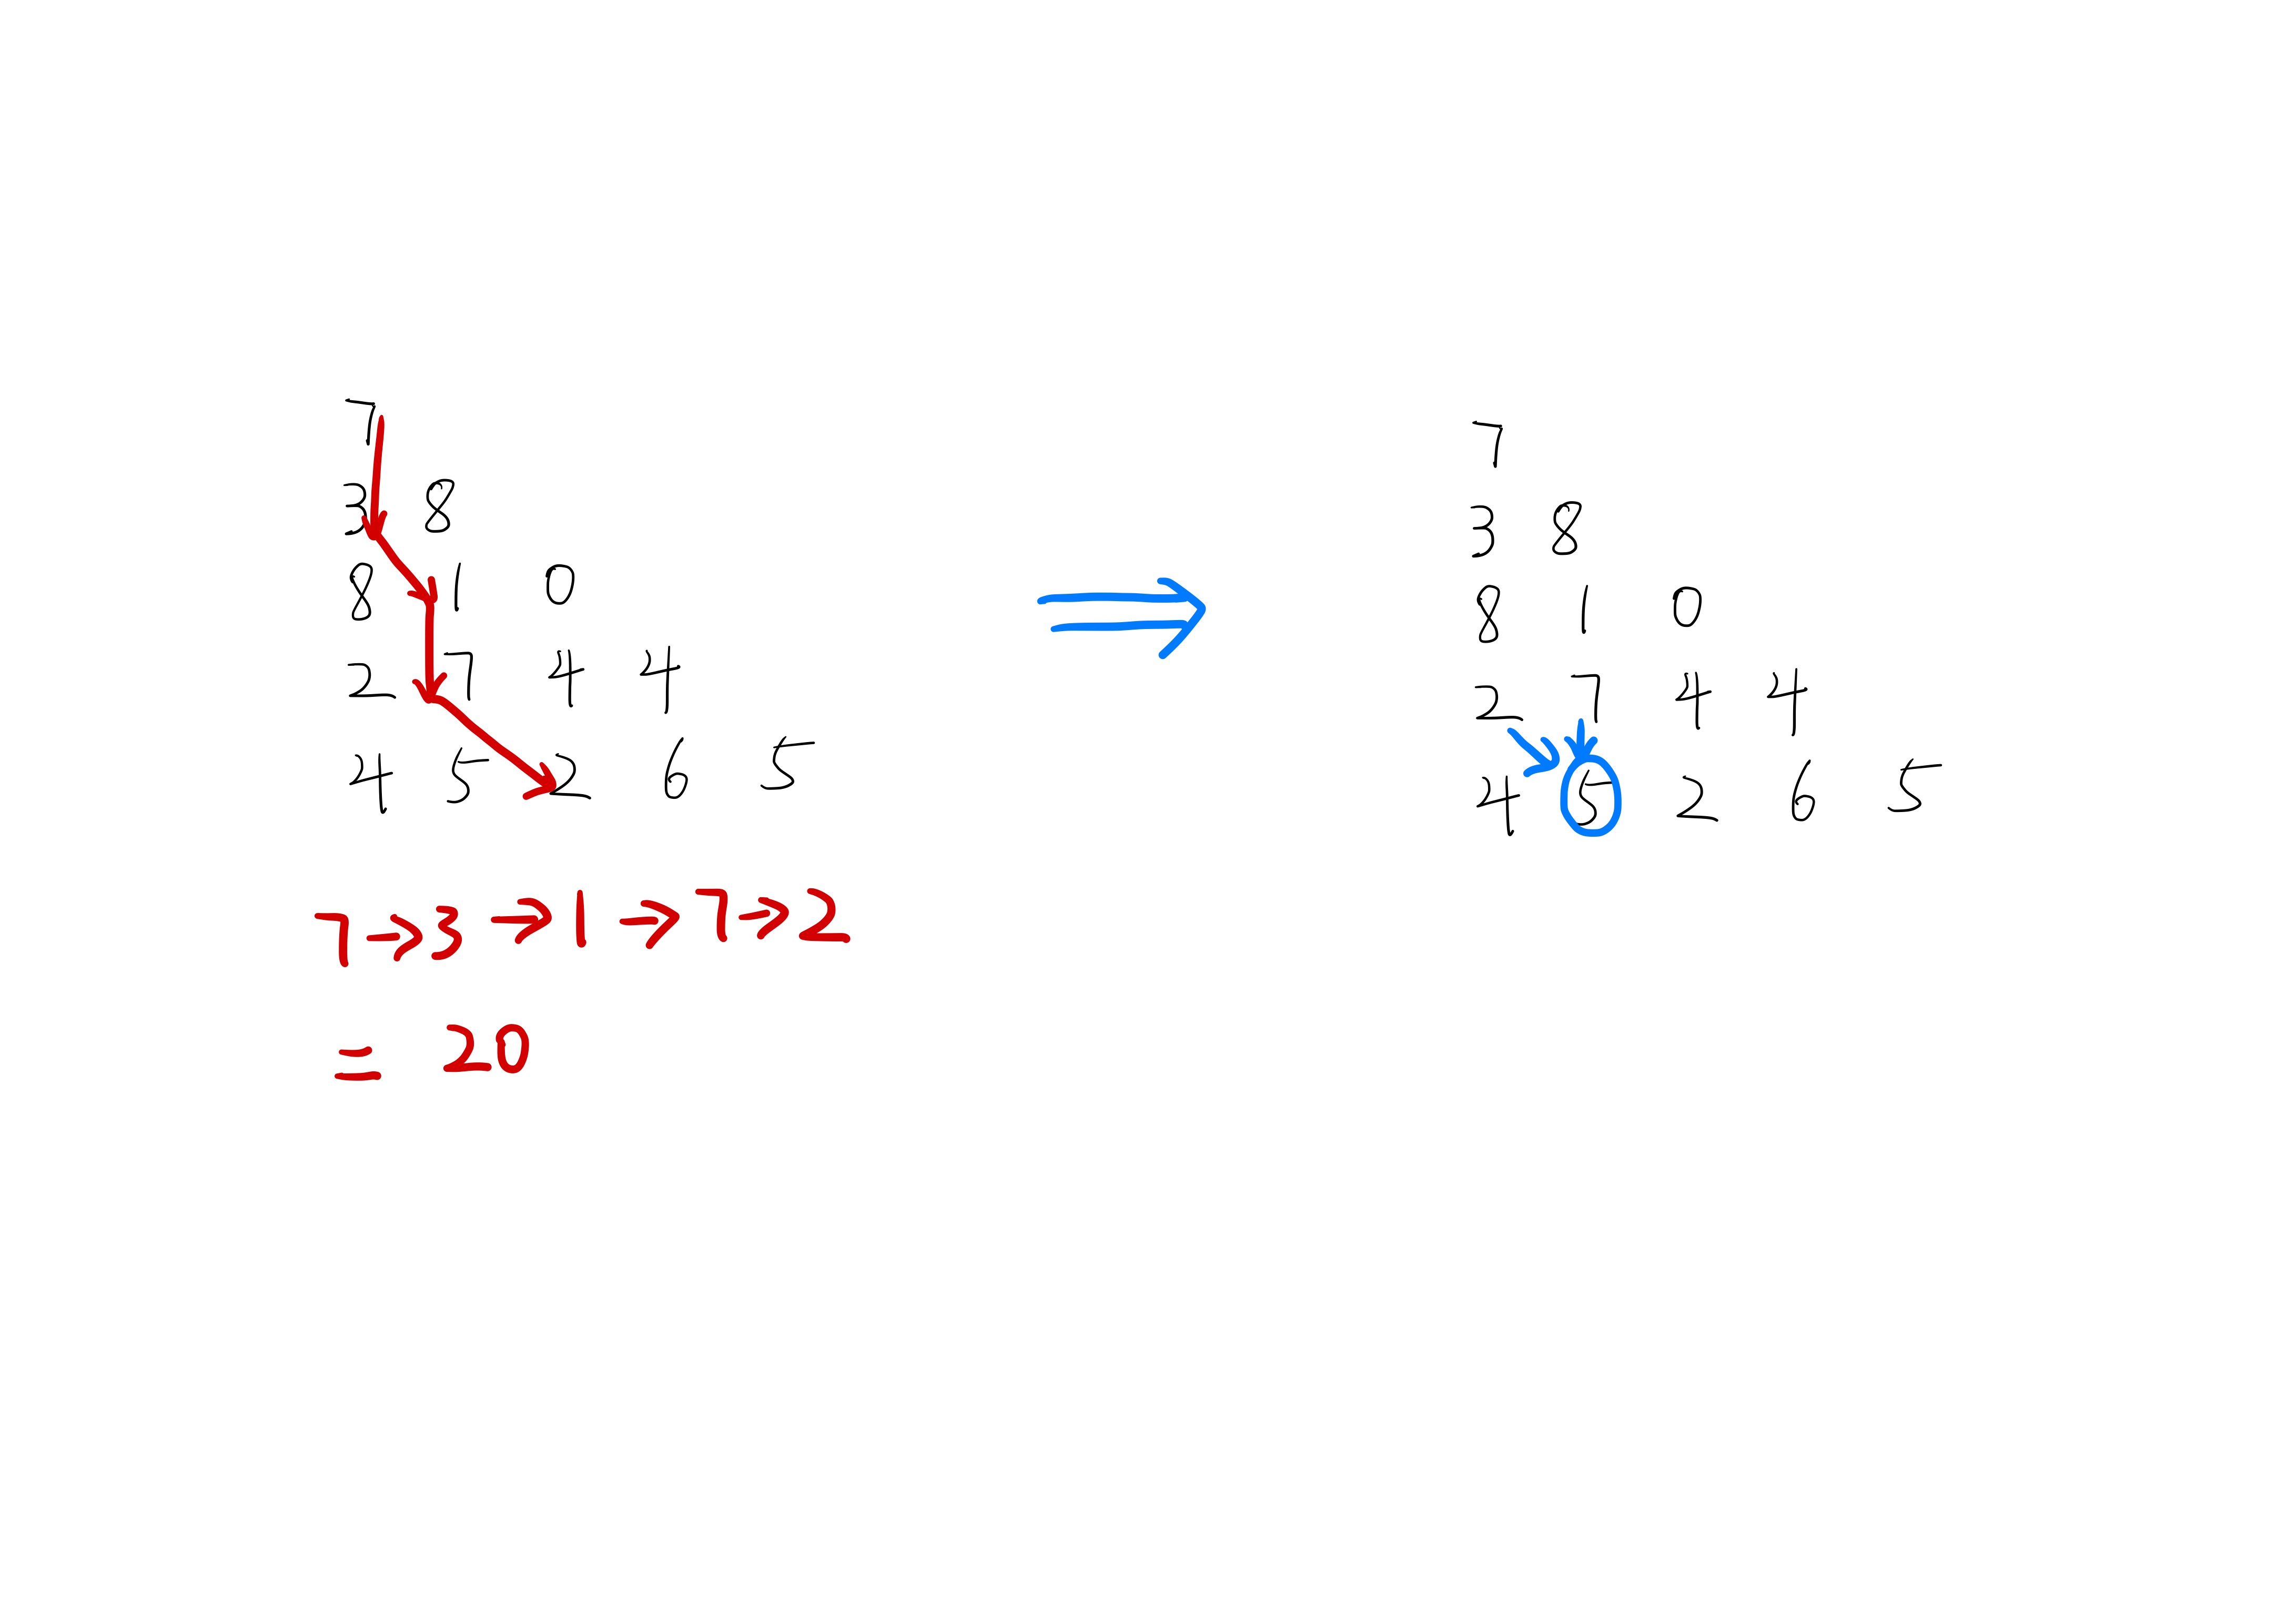 7
3 8
8 1 0
2 7 4 4
4 5 2 6 5
7→3→1→7→2
= 20
⇒
7
3 8
8 1 0
2 7 4 4
4 5 2 6 5